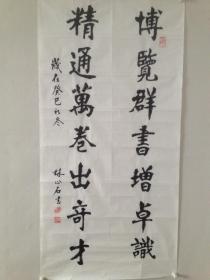 博覽群書增卓識
精通萬卷出奇才
歲在癸巳初冬
林山石書